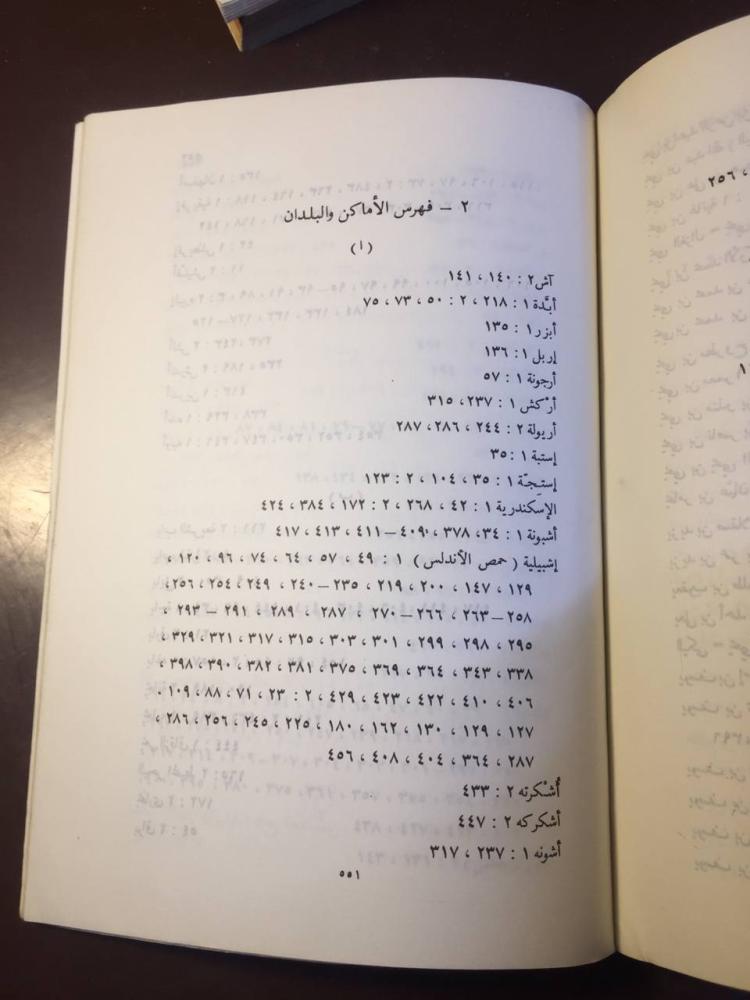 ٢ – فهرس الأماكن والبلدان
(١)
آش ٢ : ١٤٠ ، ١٤١
أبَّدة ١ : ٢١٨ ، ٢ : ٥٠ ، ٧٣ ، ٧٥
أبزر ١ : ١٣٥
إربل ١ : ١٣٦
أرجونة ١ : ٥٧
أرْكش ١ : ٢٣٧ ، ٣١٥
أريولة ٢ : ٢٤٤ ، ٢٨٦ ، ٢٨٧
إستبة ١ : ٣٥
إستِجّة ١ : ٣٥ ، ١٠٤ ، ٢ : ١٢٣
الإسكندرية ١ : ٤٢ ، ٢٦٨ ، ٢ : ١٧٢ ، ٣٨٤ ، ٤٢٤
أشبونة ١ : ٣٤ ، ٣٧٨ ، ٤٠٩–٤١١ ، ٤١٣ ، ٤١٧
إشبيلية ( حمص الأندلس ) ١ : ٤٩ ، ٥٧ ، ٦٤ ، ٧٤ ، ٩٦ ، ١٢٠ ،
١٢٩ ، ١٤٧ ، ٢٠٠ ، ٢١٩ ، ٢٣٥–٢٤٠ ، ٢٤٩ ، ٢٥٤ ، ٢٥٦ ،
٢٥٨–٢٦٣ ، ٢٦٦–٢٧٠ ، ٢٨٧ ، ٢٨٩ ، ٢٩١ – ٢٩٣ ،
٢٩٥ ، ٢٩٨ ، ٢٩٩ ، ٣٠١ ، ٣٠٣ ، ٣١٥ ، ٣١٧ ، ٣٢١ ، ٣٢٩ ،
٣٣٨ ، ٣٤٣ ، ٣٦٤ ، ٣٦٩ ، ٣٧٥ ، ٣٨١ ، ٣٨٢ ، ٣٩٠ ، ٣٩٨ ،
٤٠٦ ، ٤١٠ ، ٤٢٢ ، ٤٢٣ ، ٤٢٩ ، ٢ : ٢٣ ، ٧١ ، ٨٨ ، ١٠٩ ،
١٢٧ ، ١٢٩ ، ١٣٠ ، ١٦٢ ، ١٨٠ ، ٢٢٥ ، ٢٤٥ ، ٢٥٦ ، ٢٨٦ ،
٢٨٧ ، ٣٦٤ ، ٤٠٤ ، ٤٠٨ ، ٤٥٦
أُشْكرته ٢ : ٤٣٣
أشكركه ٢ : ٤٤٧
أشونه ١ : ٢٣٧ ، ٣١٧
٥٥١
، ٢٥٦